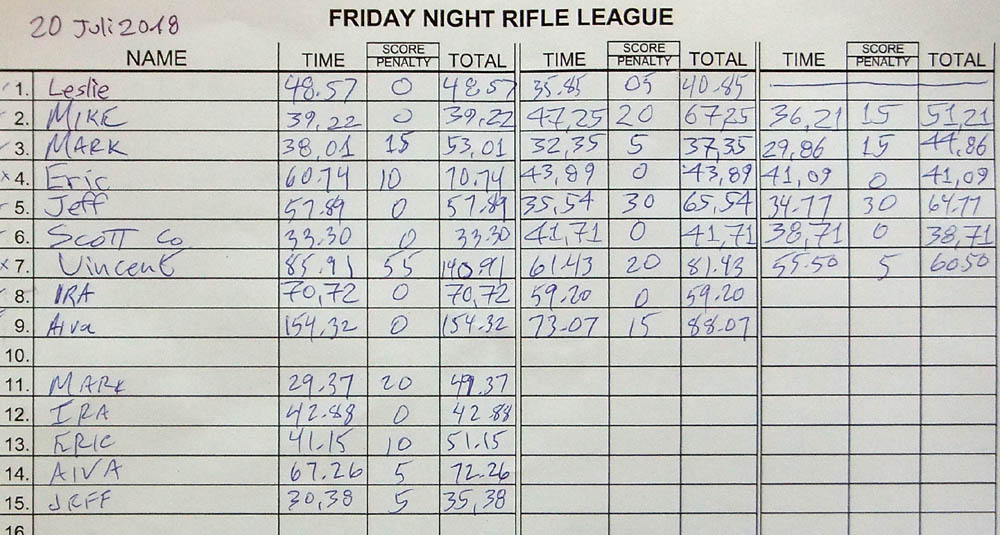 20 Juli 2018
FRIDAY NIGHT RIFLE LEAGUE
NAME TIME SCORE PENALTY TOTAL TIME SCORE PENALTY TOTAL TIME SCORE PENALTY TOTAL
1. Leslie 48.57 0 48.57 35.85 05 40.85
2. MIKE 39,22 0 39,22 47,25 20 67,25 36,21 15 51,21
3. MARK 38,01 15 53,01 32,35 5 37,35 29,86 15 44,86
x 4. Eric 60.74 10 70.74 43,89 0 43,89 41,09 0 41,09
5. Jeff 57.89 0 57.89 35,54 30 65,54 34.77 30 64.77
6. Scott Co 33.30 0 33.30 41,71 0 41,71 38,71 0 38,71
x 7. Vincent 85.91 55 140.91 61.43 20 81.43 55.50 5 60.50
8. IRA 70,72 0 70,72 59.20 0 59.20
9. Aiva 154,32 0 154.32 73.07 15 88.07
10.
11. MARK 29.37 20 49.37
12. IRA 42.88 0 42.88
13. ERIC 41.15 10 51.15
14. AIVA 67.26 5 72.26
15. JEFF 30,38 5 35,38
16